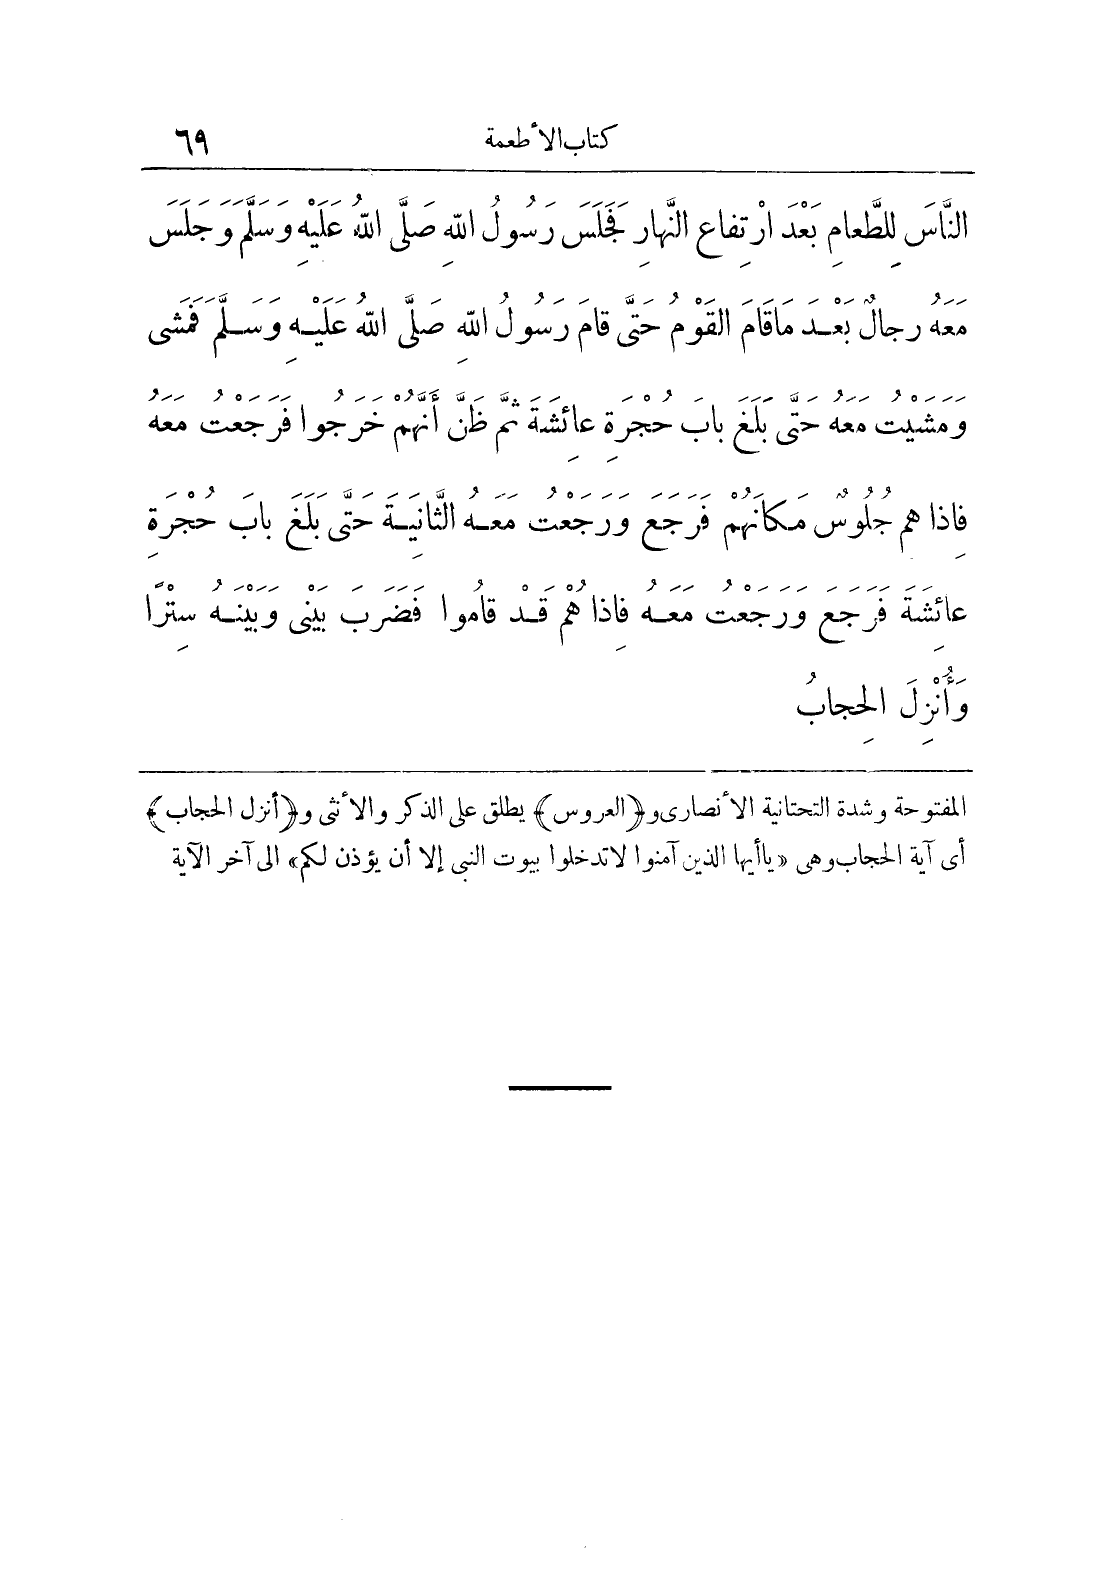 كتاب الأطعمة ٦٩
النَّاسَ لِلطَّعامِ بَعْدَ ارْتِفاعِ النَّهارِ فَجَلَسَ رَسُولُ اللّهِ صَلَّى اللّهُ عَلَيْهِ وَسَلَّمَ وَجَلَسَ
مَعَهُ رِجالٌ بَعْدَ ماقَامَ القَوْمُ حَتَّى قامَ رَسُولُ اللّهِ صَلَّى اللّهُ عَلَيْهِ وَسَلَّمَ فَمَشَى
ومَشَيْتُ مَعَهُ حَتَّى بَلَغَ بابَ حُجْرَةِ عائِشَةَ ثُمَّ ظَنَّ أَنَّهُمْ خَرَجُوا فَرَجَعْتُ مَعَهُ
فاذا هُمْ جُلُوسٌ مَكانَهُمْ فَرَجَعَ ورَجَعْتُ مَعَهُ الثَّانِيَةَ حَتَّى بَلَغَ بابَ حُجْرَةِ
عائِشَةَ فَرَجَعَ ورَجَعْتُ مَعَهُ فاذا هُمْ قَدْ قامُوا فَضَرَبَ بَيْنِى وبَيْنَهُ سِتْرًا
وَأُنْزِلَ الحِجابُ
المفتوحة وشدة التحتانية الأنصارى و﴿العروس﴾ يطلق على الذكر والأنثى و﴿أنزل الحجاب﴾
أى آية الحجاب وهى «ياأيها الذين آمنوا لاتدخلوا بيوت النبى إلا أن يؤذن لكم» الى آخر الآية